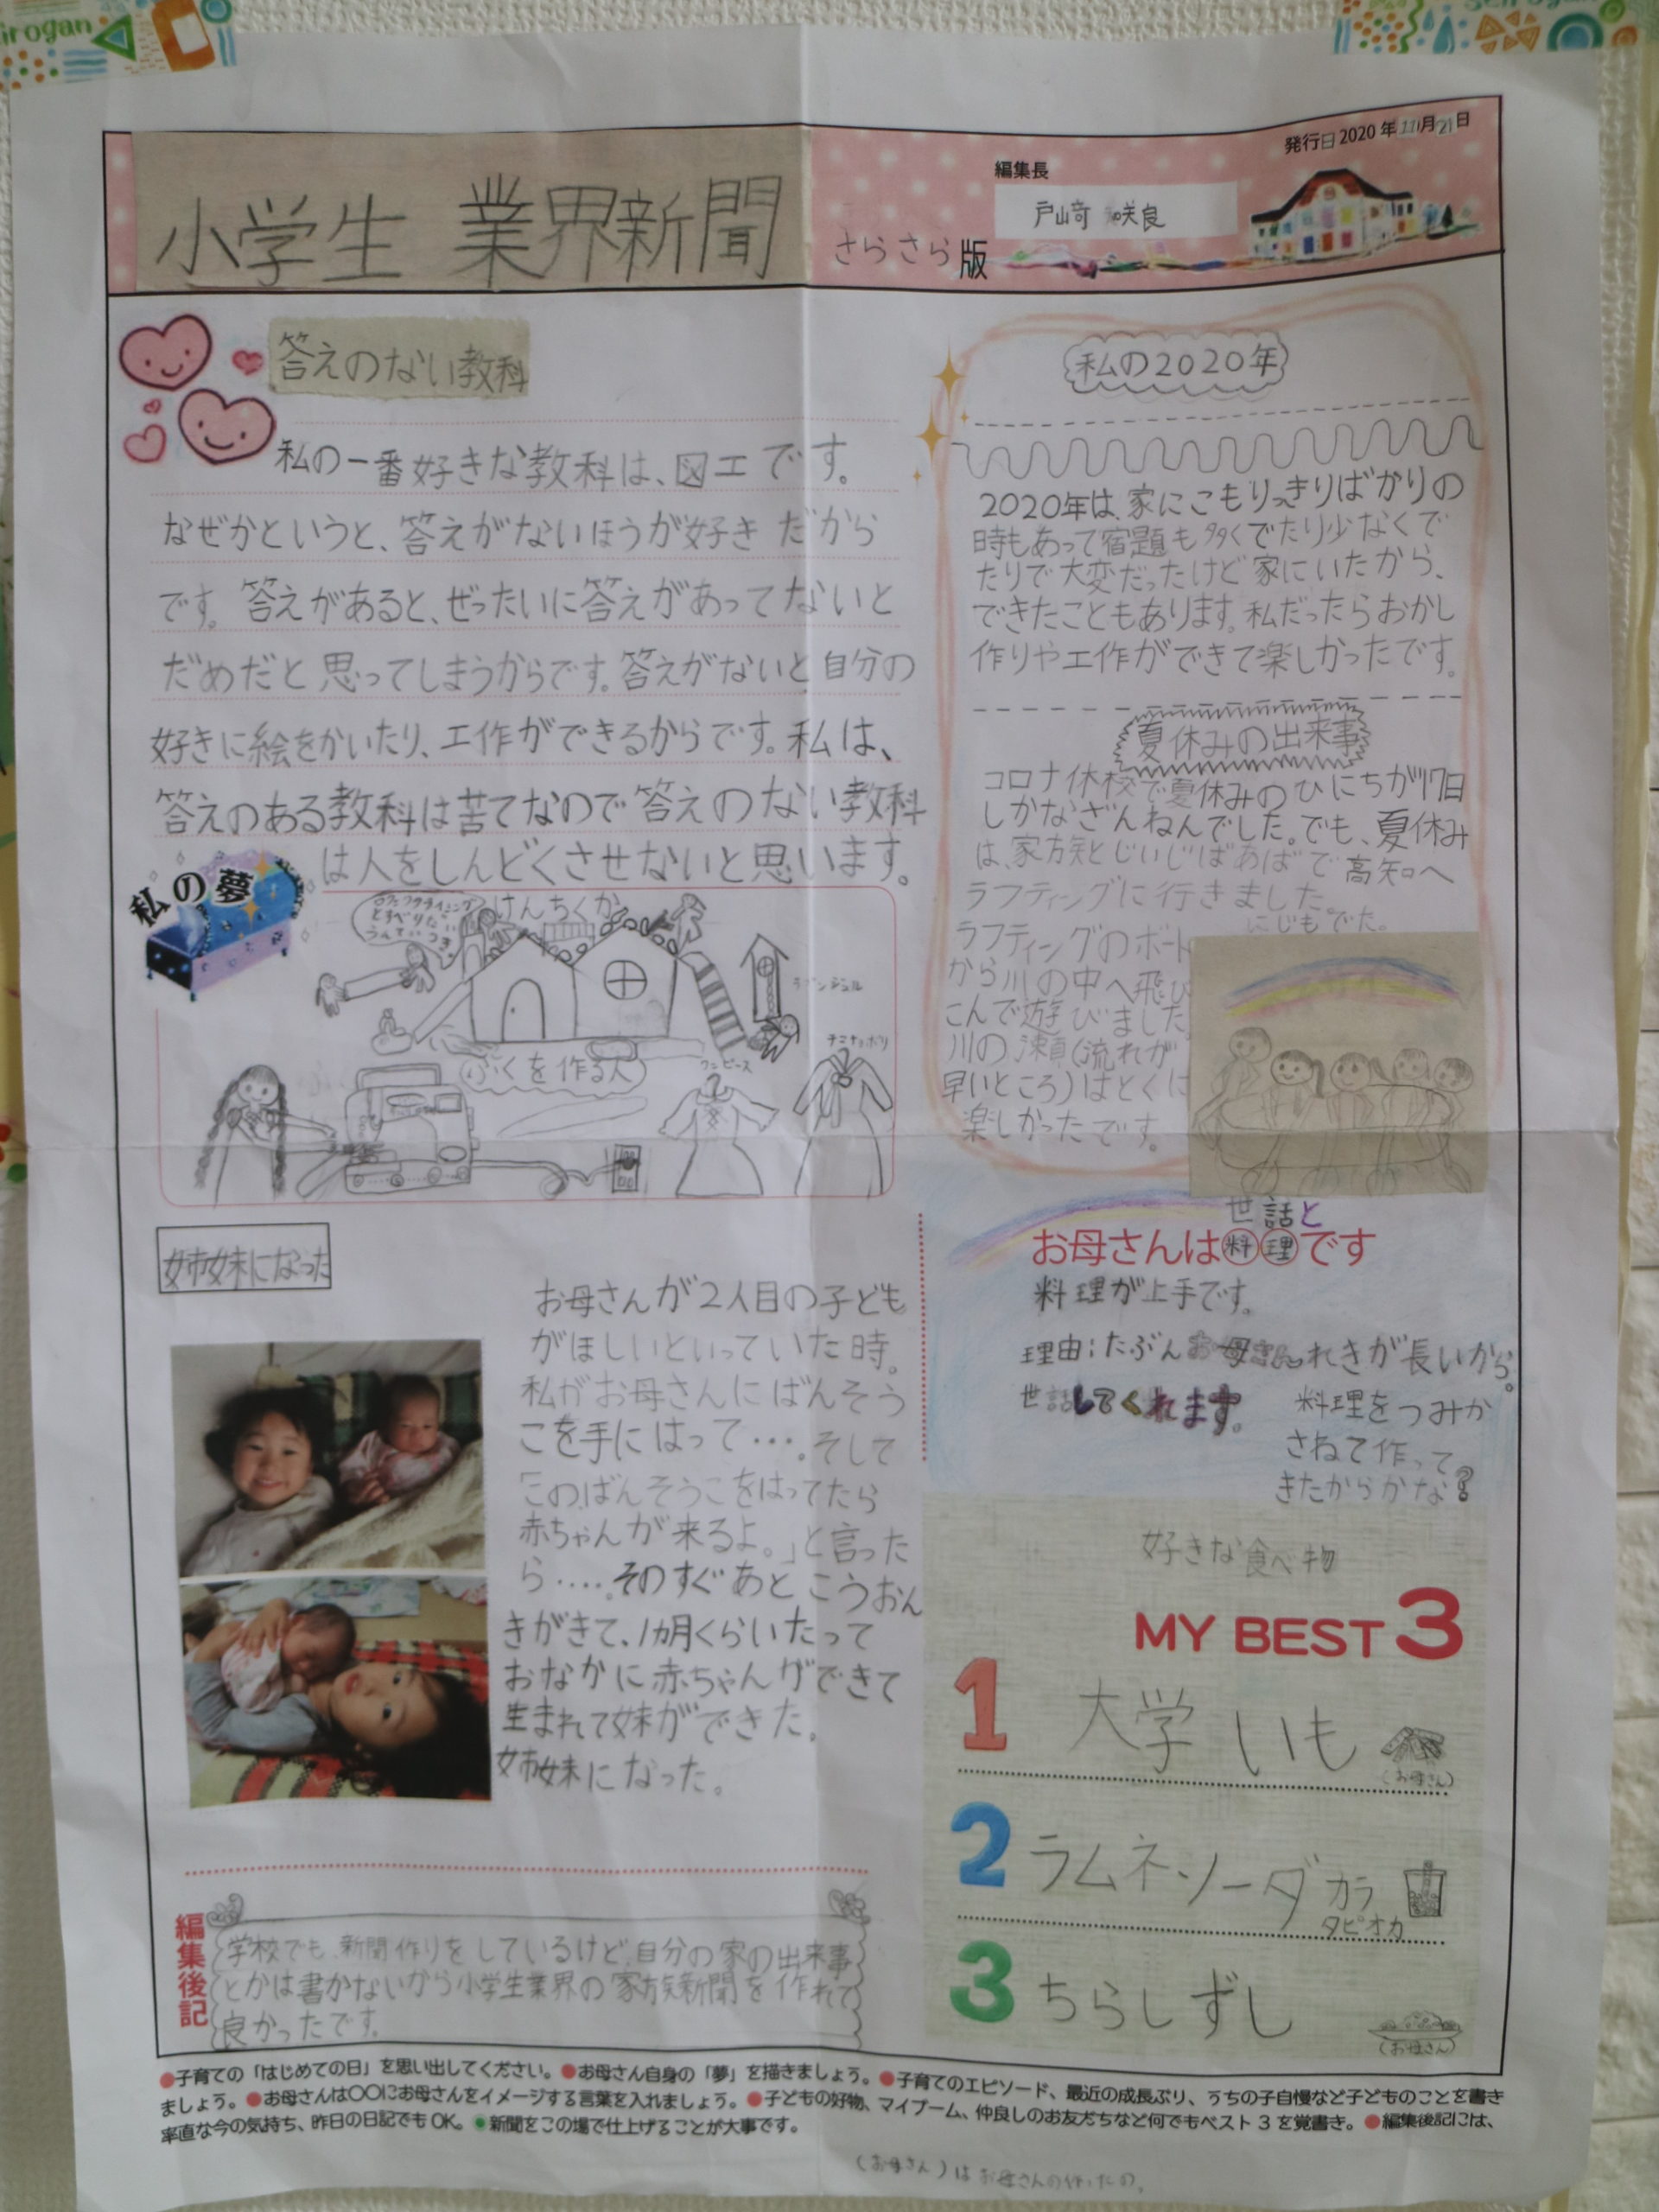 irogan
seirogan
小学生 業界新聞
さらさら版
編集長
戸山奇 咲良
発行日 2020 年 11月 21日
答えのない教科
私の一番好きな教科は、図工です。
なぜかというと、答えがないほうが好き だから
です。答えがあると、ぜったいに答えがあってないと
だめだと思ってしまうからです。答えがないと自分の
好きに絵をかいたり、工作ができるからです。私は、
答えのある教科は苦てなので答えのない教科
は人をしんどくさせないと思います。
私の夢
けんちくか
ふくを作る人
ワンピース
私の2020年
2020年は、家にこもりっきりばかりの
時もあって宿題も多くでたり少なくで
たりで大変だったけど家にいたから、
できたこともあります。私だったらおかし
作りや工作ができて楽しかったです。
夏休みの出来事
コロナ休校で夏休みのひにちが17日
しかなざんねんでした。でも、夏休み
は、家族とじいじばあばで高知へ
ラフティングに行きました。
にじもでた。
ラフティングのボート
から川の中へ飛び
こんで遊びました。
川の瀬(流れが
早いところ)はとくに
楽しかったです。
姉妹になった
お母さんが2人目の子ども
がほしいといっていた時。
私がお母さんにばんそう
こを手にはって‥‥。そして
「このばんそうこをはってたら
赤ちゃんが来るよ。」と言った
ら‥‥。そのすぐあとこうおん
きがきて、1ヵ月くらいたって
おなかに赤ちゃんができて
生まれて妹ができた。
姉妹になった。
世話と
お母さんは料理です
料理が上手です。
理由:たぶんお母さんれきが長いから。
世話してくれます。
料理をつみか
さねて作って
きたからかな?
好きな食べ物
MY BEST 3
1 大学いも
(お母さん)
2 ラムネソーダ カラ
タピオカ
3 ちらしずし
(お母さん)
編集後記
学校でも新聞作りをしているけど、自分の家の出来事
とかは書かないから小学生業界の家族新聞を作れて
良かったです。
●子育ての「はじめての日」を思い出してください。●お母さん自身の「夢」を描きましょう。●子育てのエピソード、最近の成長ぶり、うちの子自慢など子どものことを書き
ましょう。●お母さんは〇〇にお母さんをイメージする言葉を入れましょう。●子どもの好物、マイブーム、仲良しのお友だちなど何でもベスト 3 を覚書き。●編集後記には、
率直な今の気持ち、昨日の日記でも OK。●新聞をこの場で仕上げることが大事です。
(お母さん)はお母さんの作ったの。